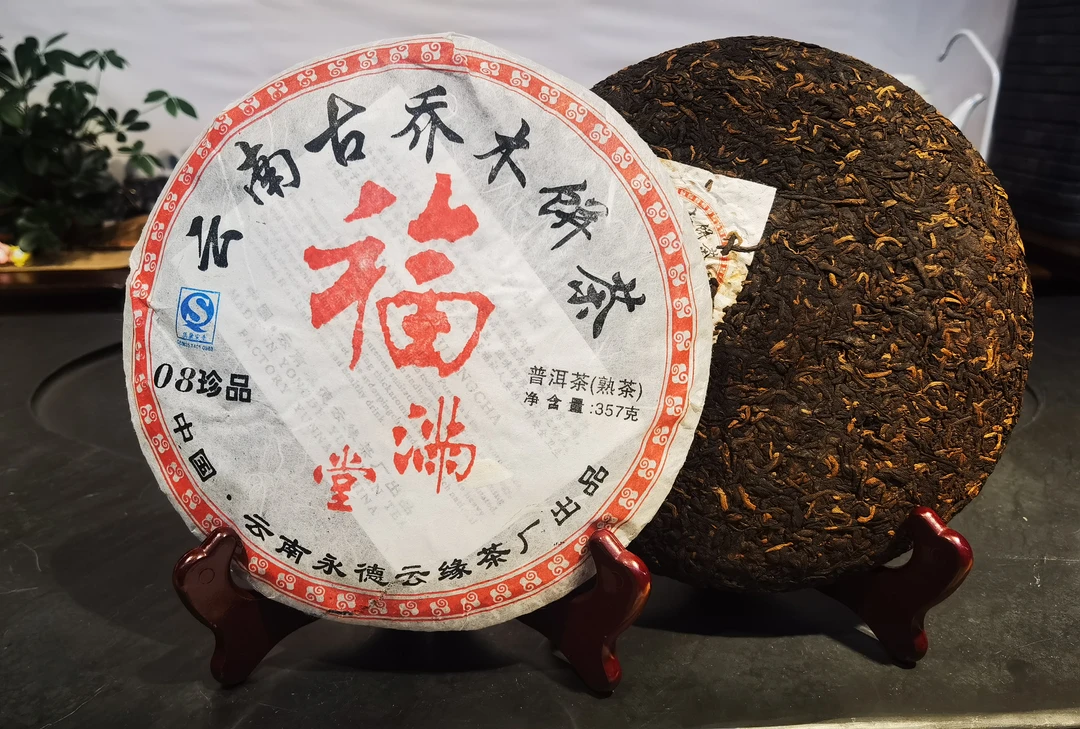 云南古乔木饼茶
福
满
堂
08珍品
普洱茶(熟茶)
净含量:357克
中国·云南永德云缘茶厂出品